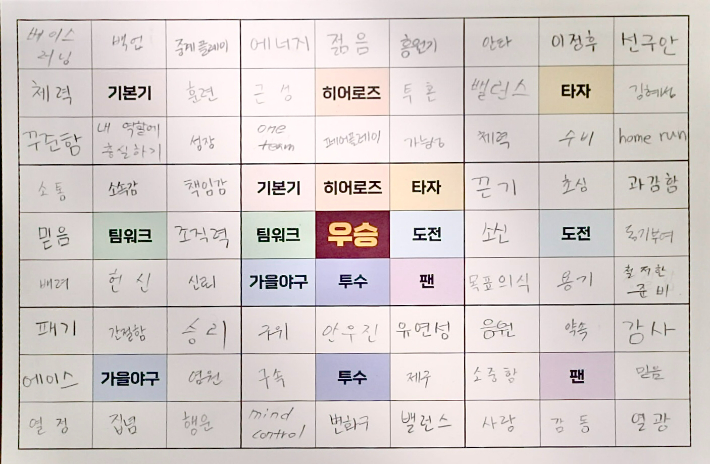 베이스 백업 중계플레이 에너지 젊음 홍원기 안타 이정후 선구안
러닝
체력 기본기 훈련 근성 히어로즈 투혼 밸런스 타자 김혜성
꾸준함 내 역할에 성장 one 페어플레이 가능성 체력 수비 home run
충실하기 team
소통 소속감 책임감 기본기 히어로즈 타자 끈기 초심 과감함
믿음 팀워크 조직력 팀워크 우승 도전 소신 도전 동기부여
배려 헌신 신뢰 가을야구 투수 팬 목표의식 용기 철저한
준비
패기 간절함 승리 구위 안우진 유연성 응원 약속 감사
에이스 가을야구 염원 구속 투수 제구 소중함 팬 믿음
열정 집념 행운 mind 변화구 밸런스 사랑 감동 열광
control